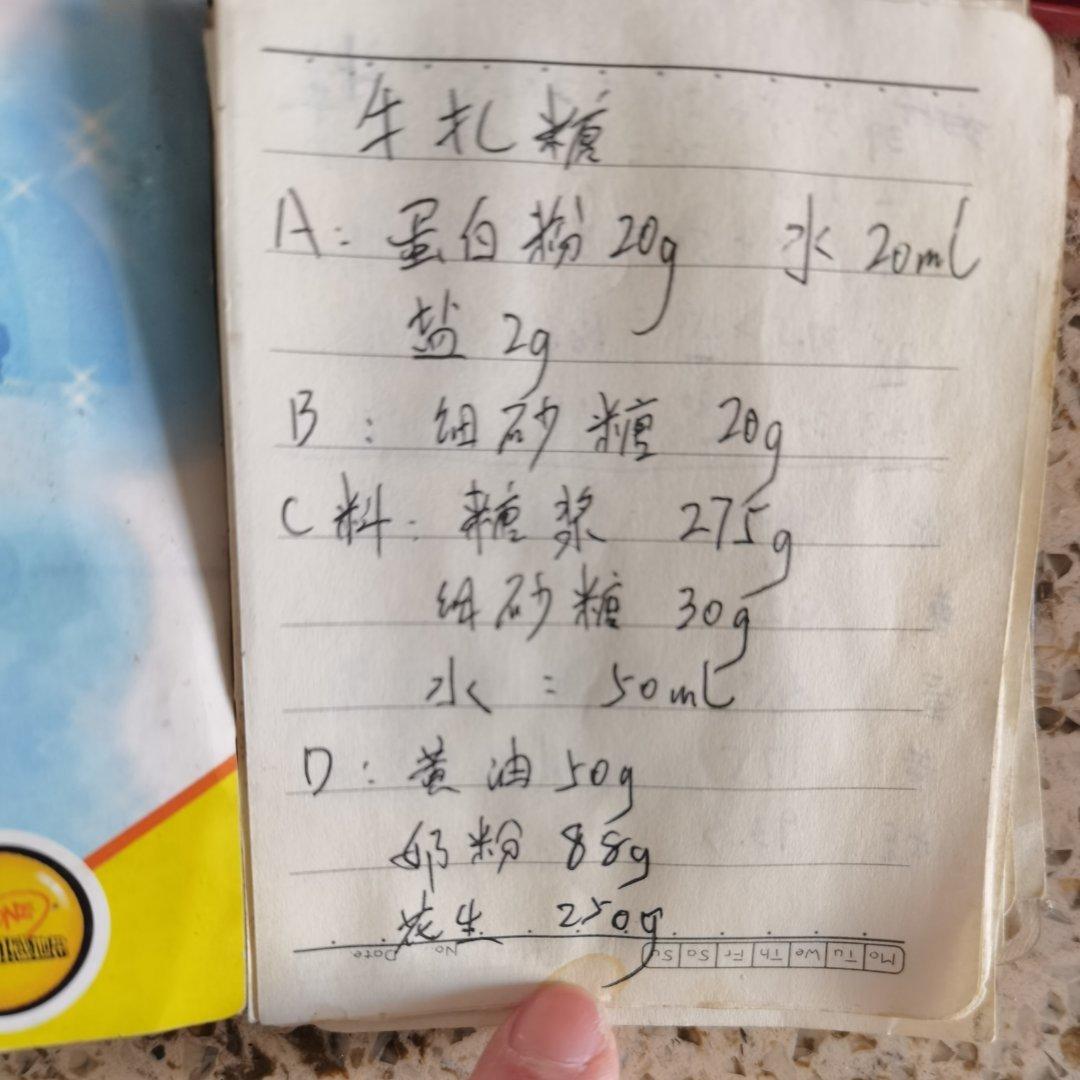 牛扎糖
A: 蛋白粉 20g 水 20ml
盐 2g
B: 细砂糖 20g
C料: 糖浆 275g
细砂糖 30g
水: 50ml
D: 黄油 50g
奶粉 88g
花生 250g
Mo Tu We Th Fr Sa Su
No
Date